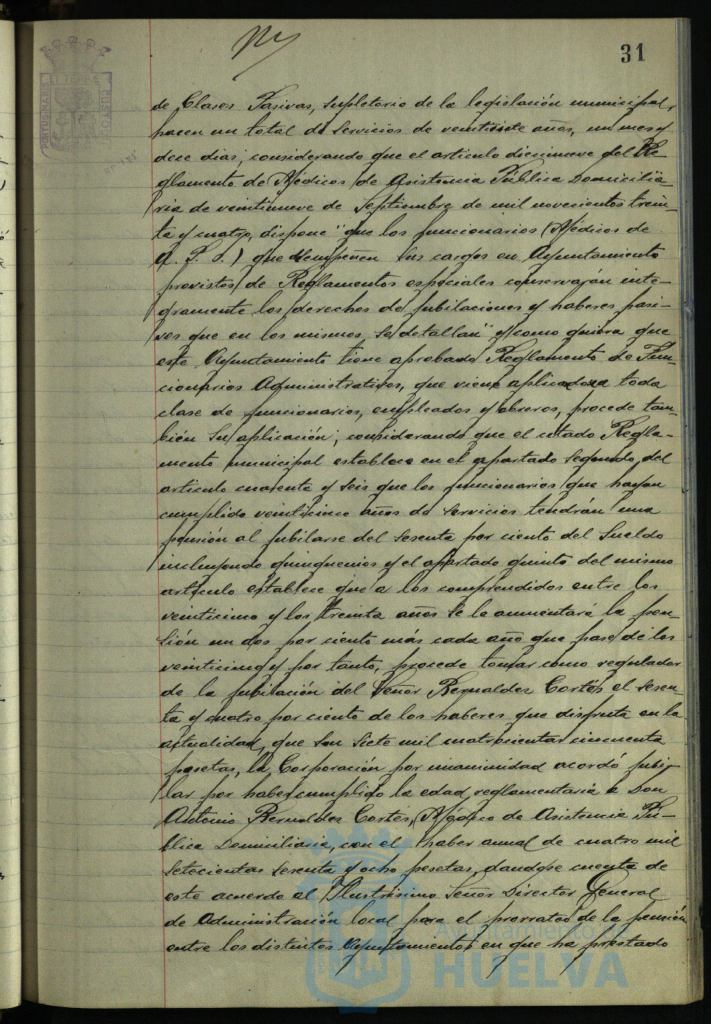 31
de Clases Pasivas, supletorio de la legislación municipal,
hacen un total de servicios de veintisiete años, un mes y
doce dias; considerando que el articulo diecinueve del Re-
glamento de Médicos de Asistencia Pública Domicilia-
ria de veintinueve de Septiembre de mil novecientos trein-
ta y cuatro, dispone "que los funcionarios (Médicos de
A. P. D.) que desempeñen sus cargos en Ayuntamiento
provistos de Reglamentos especiales conservarán inte-
gramente los derechos de jubilaciones y haberes pasi-
vos que en los mismos se detallan" y como quiera que
este Ayuntamiento tiene aprobado Reglamento de Fun-
cionarios Administrativos, que viene aplicandose a toda
clase de funcionarios, empleados y obreros, procede tam-
bién su aplicación; considerando que el citado Regla-
mento municipal establece en el apartado segundo del
articulo cuarenta y seis que los funcionarios que hayan
cumplido veinticinco años de servicios tendrán una
pensión al jubilarse del sesenta por ciento del sueldo
incluyendo quinquenios y el apartado quinto del mismo
artículo establece que a los comprendidos entre los
veinticinco y los treinta años se le aumentará la pen-
sión un dos por ciento más cada año que pase de los
veinticinco y por tanto, procede tomar como regulador
de la jubilación del Señor Bernaldez Cortés el sesen-
ta y cuatro por ciento de los haberes que disfruta en la
actualidad, que son siete mil cuatrocientas cincuenta
pesetas, la Corporación por unanimidad acordó jubi-
lar por haber cumplido la edad reglamentaria a Don
Antonio Bernaldez Cortés, Médico de Asistencia Pú-
blica Domiciliaria, con el haber anual de cuatro mil
setecientas sesenta y ocho pesetas, dandose cuenta de
este acuerdo al Ilustrisimo Señor Director General
de Administración local para el prorrateo de la pensión
entre los distintos Ayuntamientos en que ha prestado
Ayuntamiento de
HUELVA